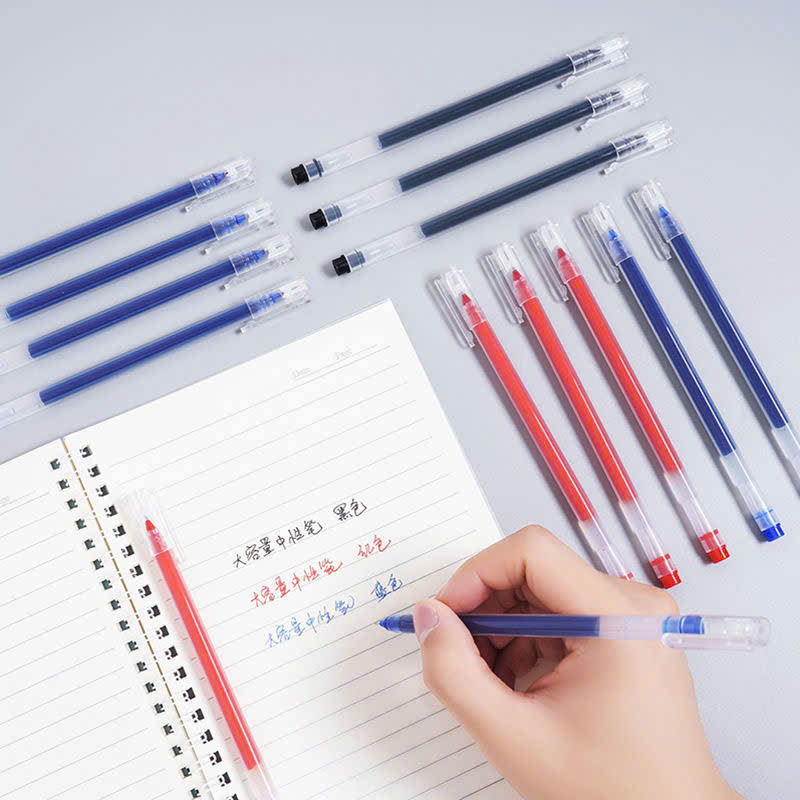 Date Page
大容量中性笔 黑色
大容量中性笔 红色
大容量中性笔 蓝色